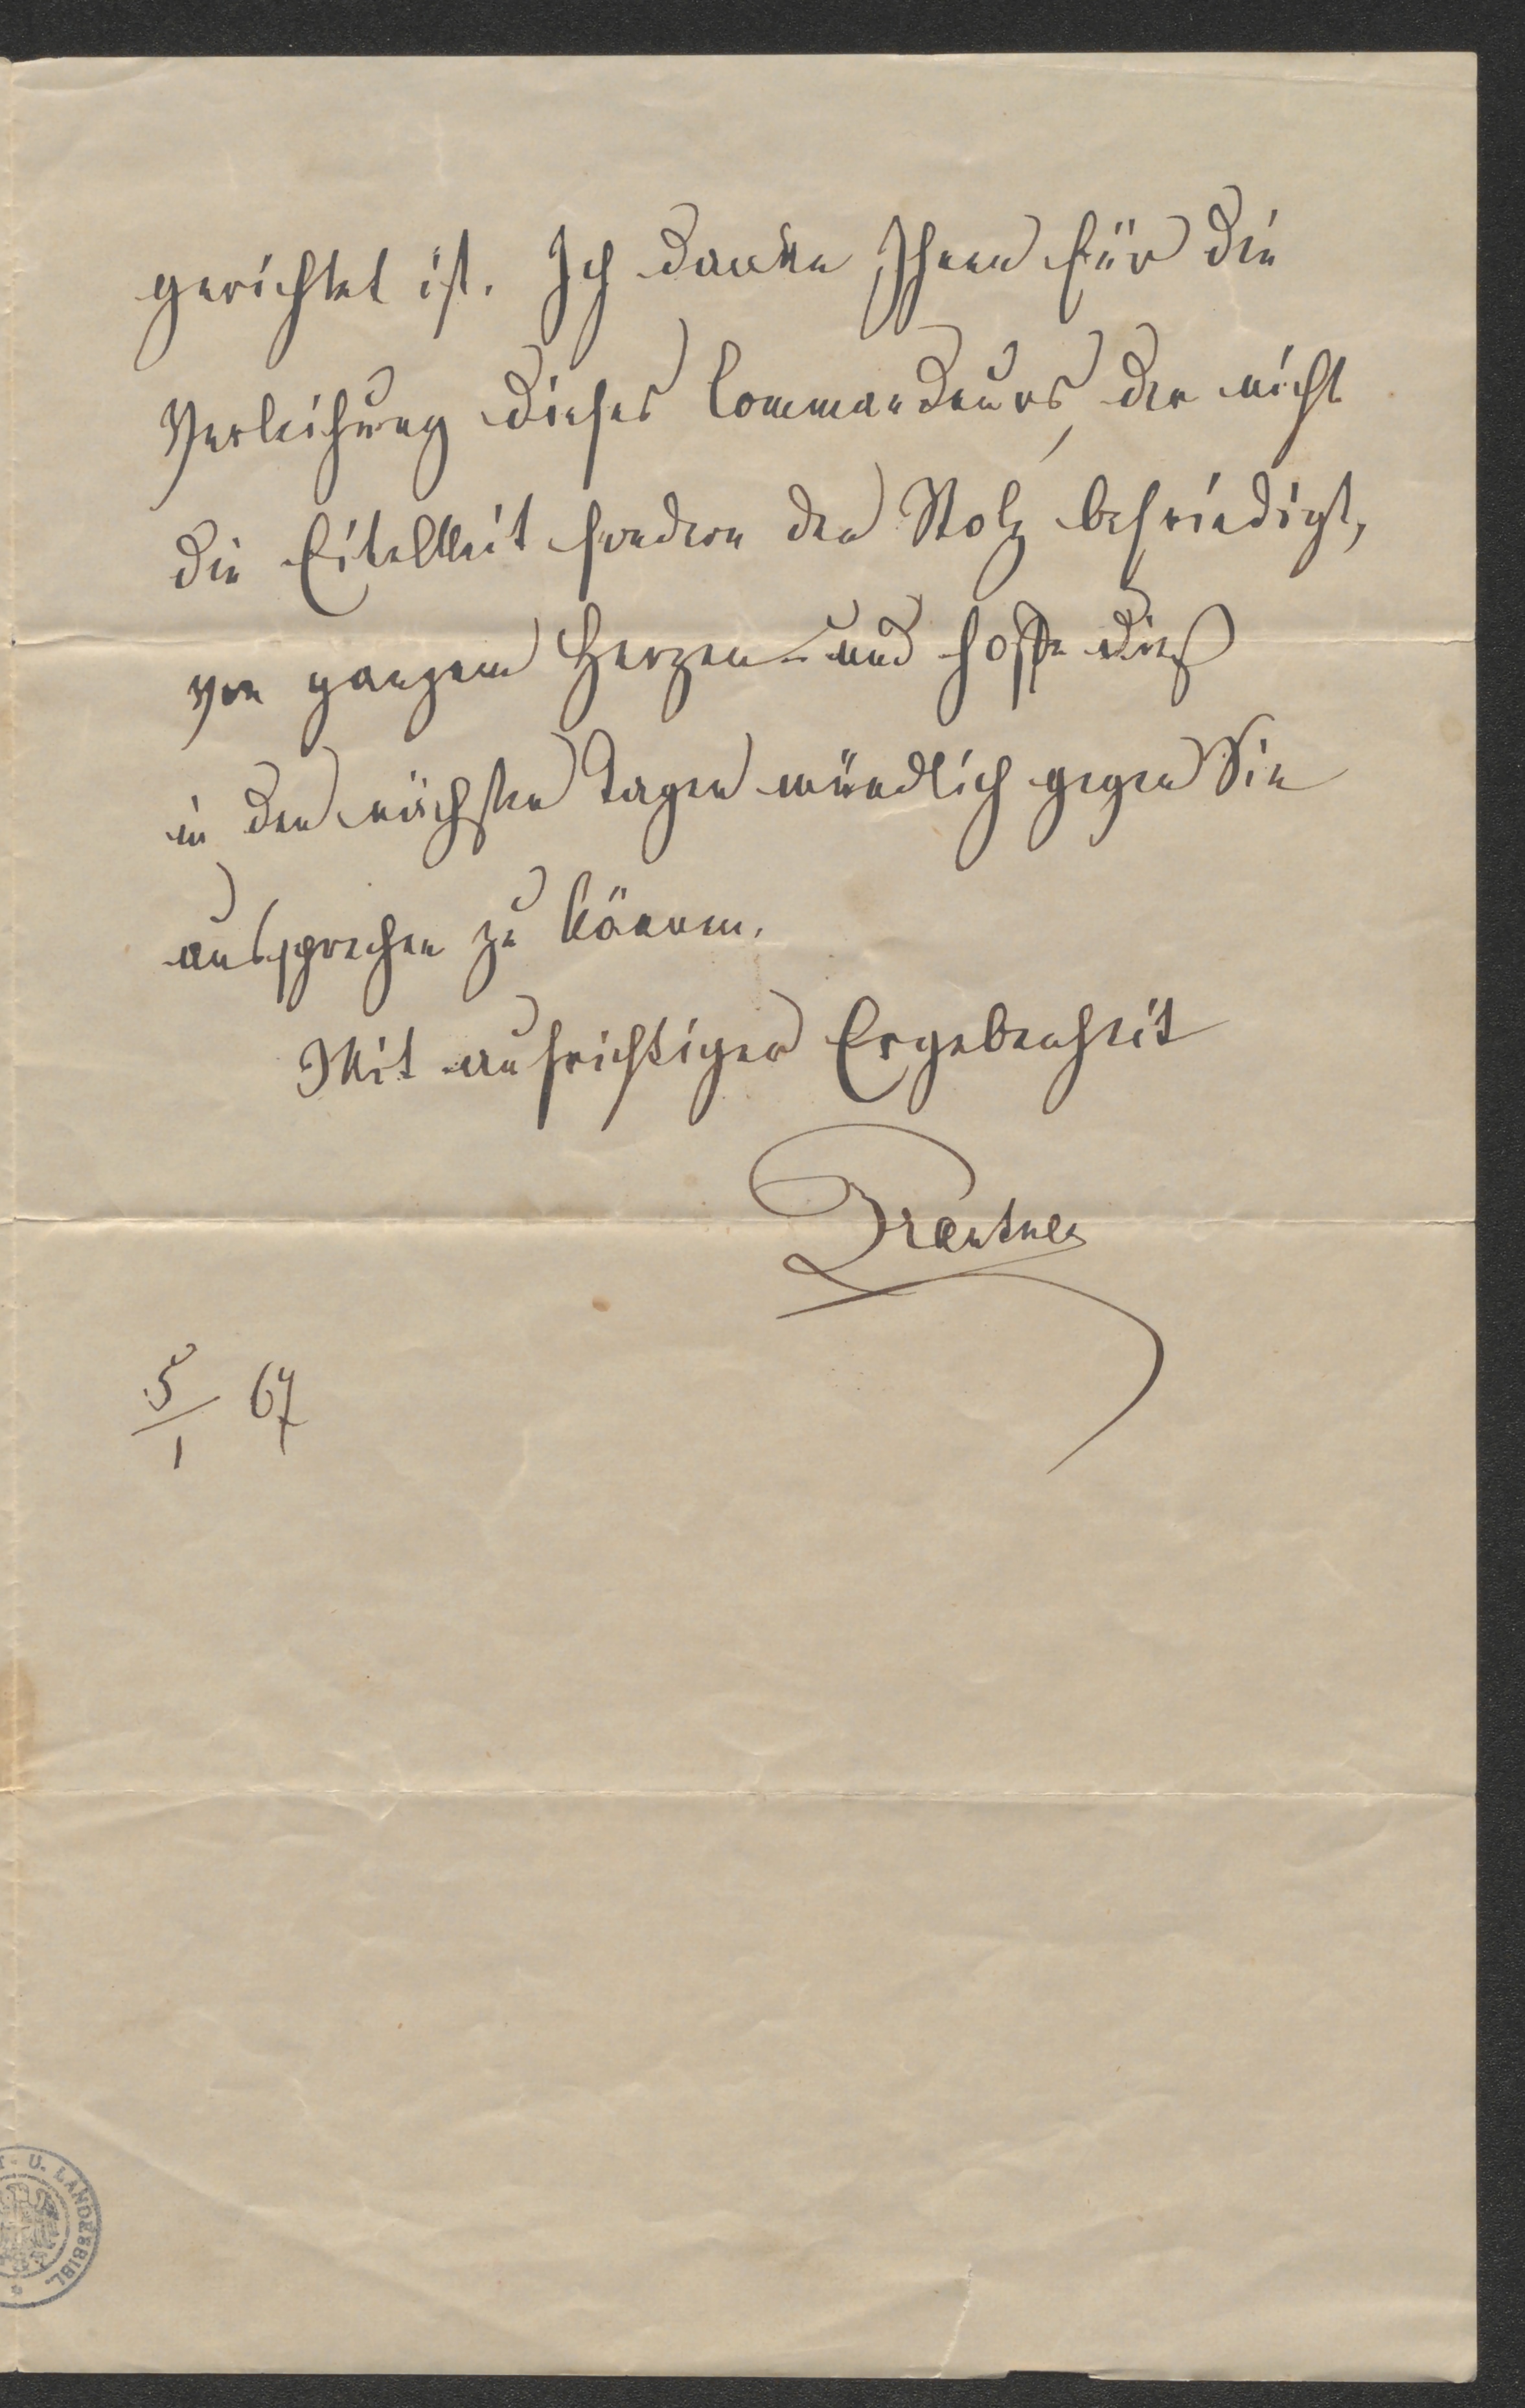 gerichtet ist. Ich danke Ihnen für die
Verleihung dieses Commandeurs, der nicht
die Eitelkeit sondern den Stolz befriedigt,
von ganzem Herzen und hoffe dieß
in den nächsten Tagen mündlich gegen Sie
aussprechen zu können.
Mit aufrichtiger Ergebenheit
5/1 67
U. LANDESBIBL.